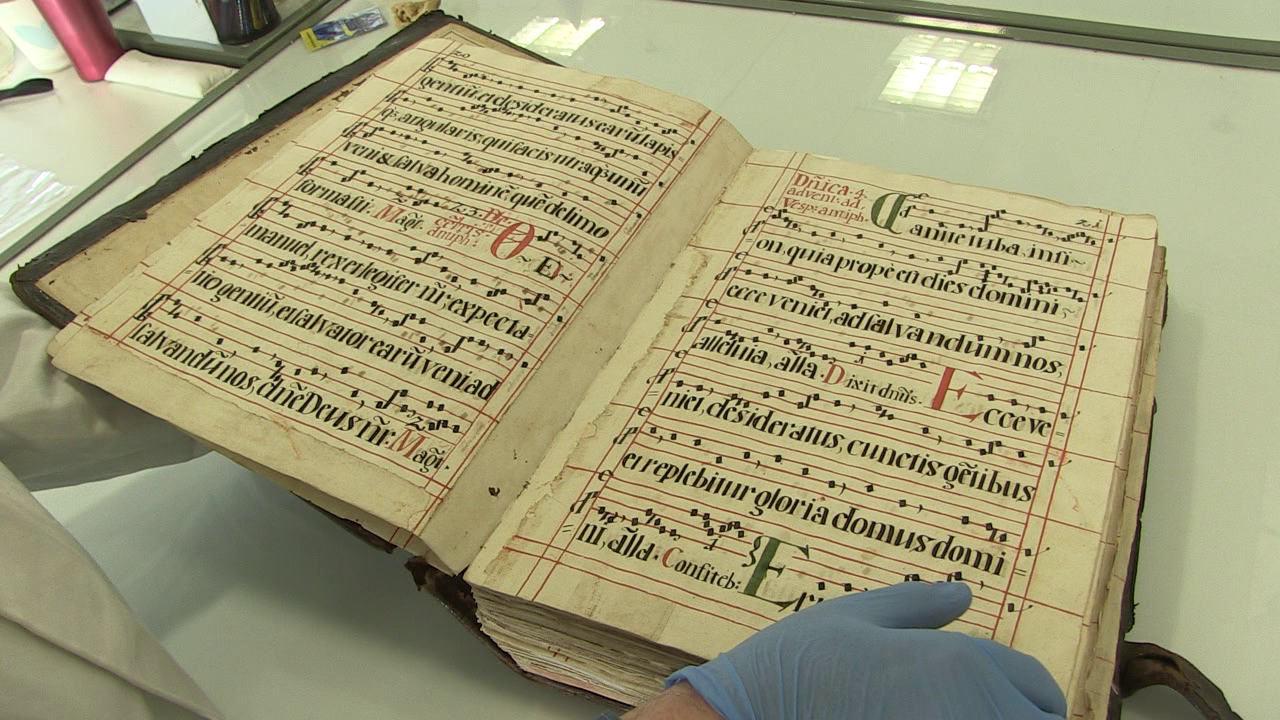 20
gentiũ, et desideratus earũ, lapis
q̃ angularis, qui facis utraq; unũ
veni & salva hominẽ quẽ de limo
formasti: Magt. antiph: O Em
manuel, rex et legifer nr̃: expecta
tio gentiũ, et salvator earũ veni ad
salvandũ nos, Dñe Deus nr̃: Magt.
Dñica. 4.
adveni: ad.
Vesp: antiph:
21
Canite tuba, in si
on, quia prope est dies domini
ecce veniet, ad salvandum nos,
alleluia, alla. Dixit dnũs. Ecce ve
niet, desideratus, cunctis gẽtibus
et replebitur gloria domus domi
ni, alla: Confiteb: E